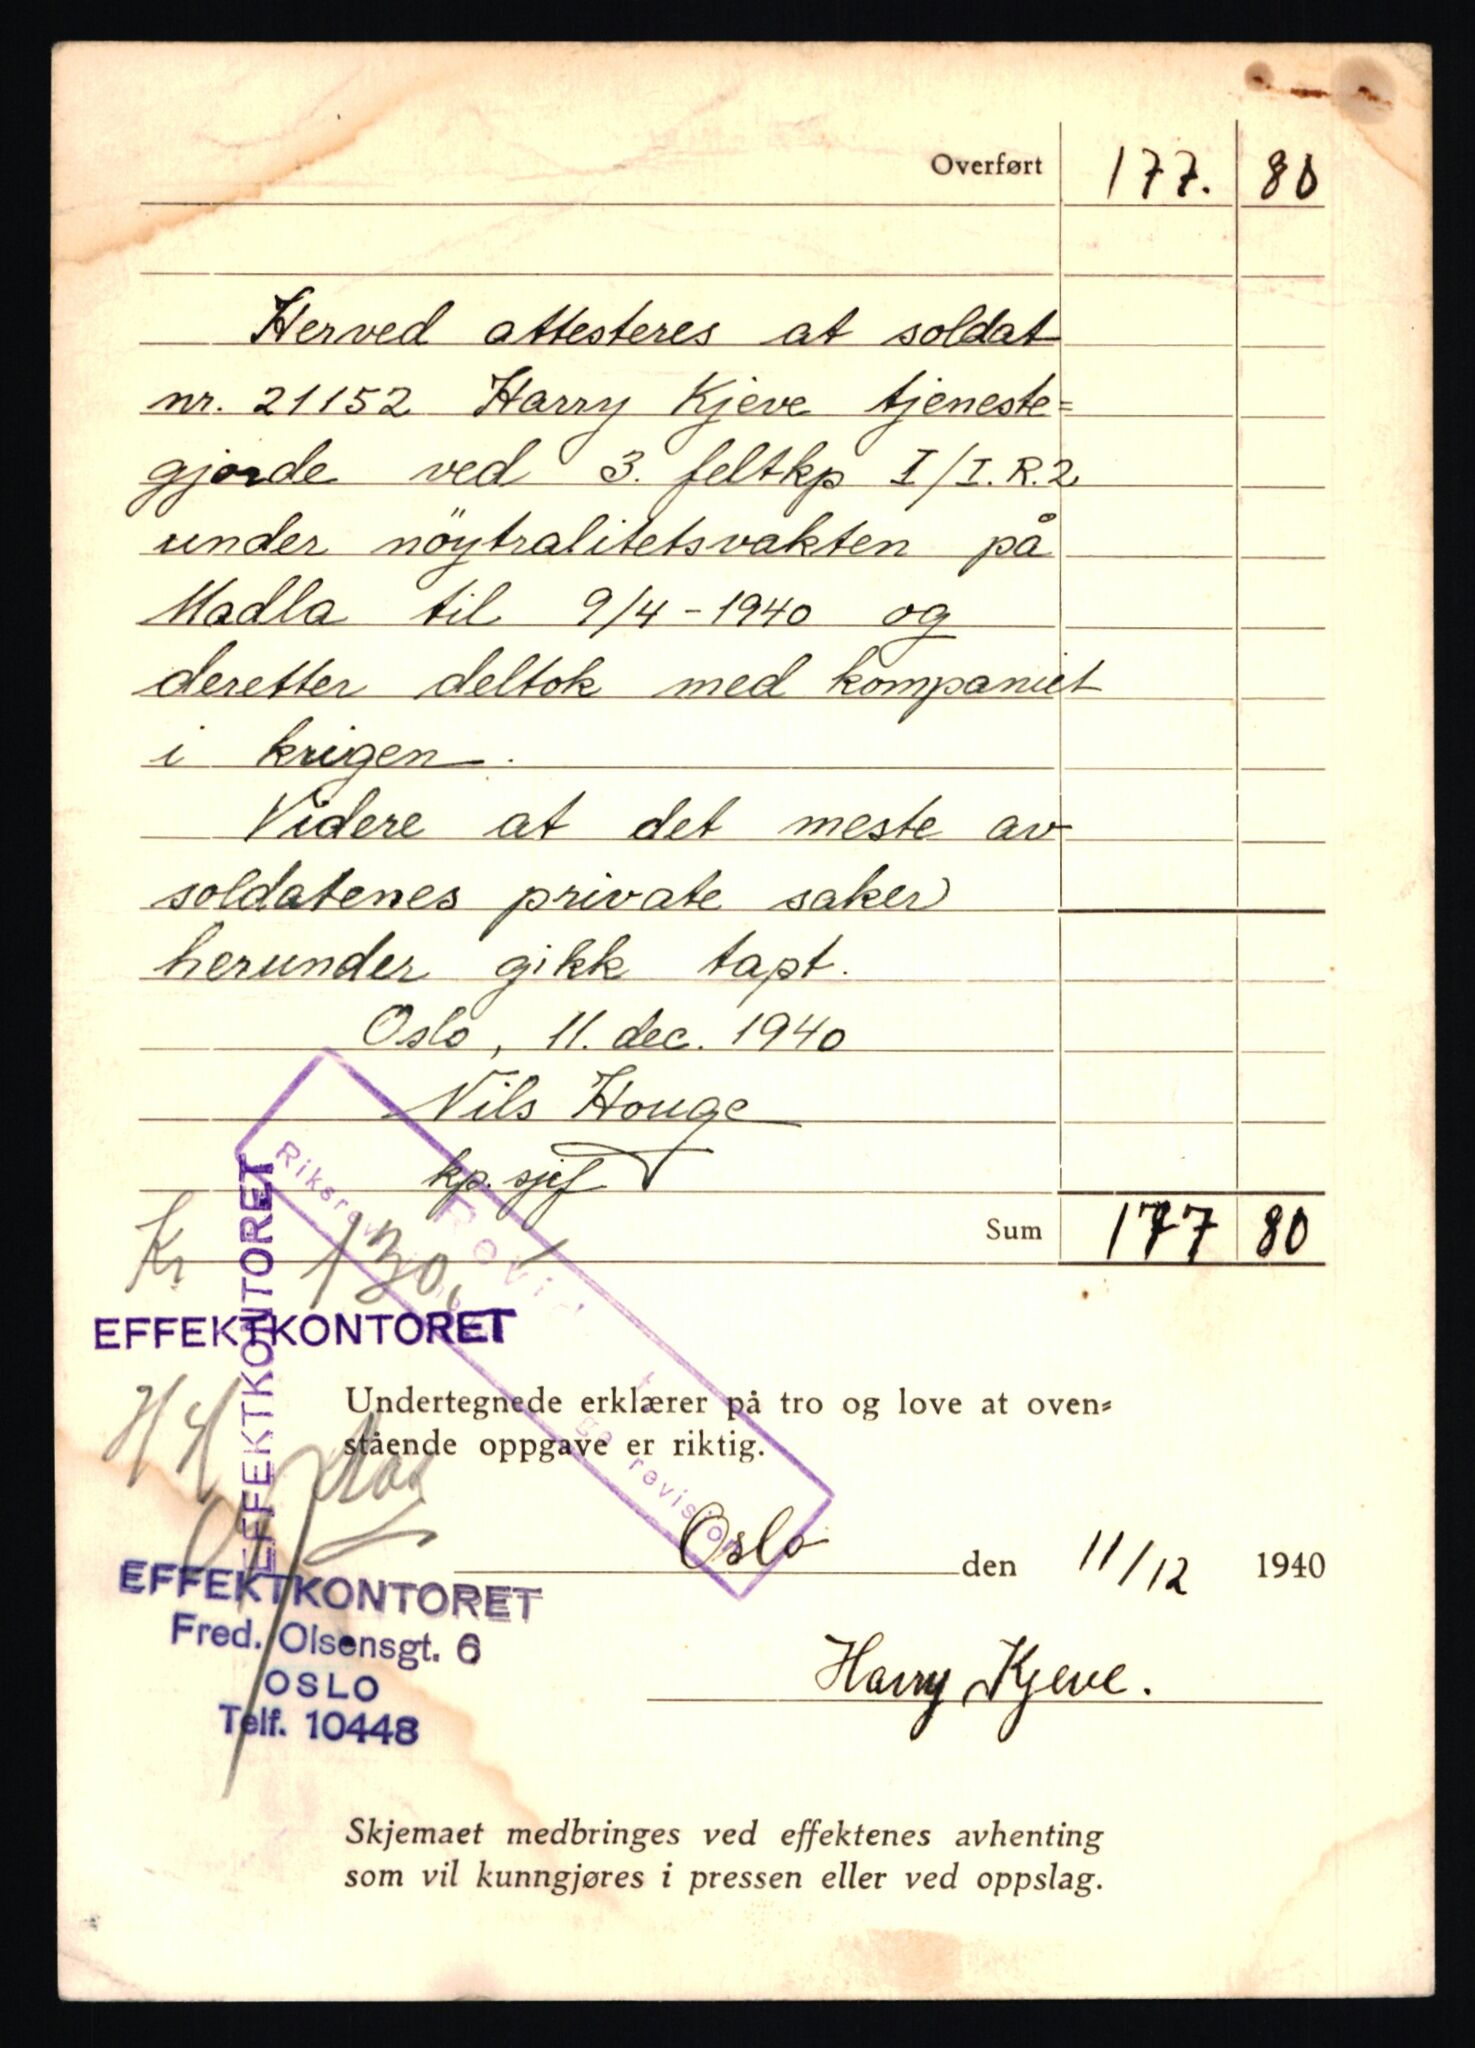 Overført 177. 80
Herved attesteres at soldat
nr. 21152 Harry Kjeve tjeneste=
gjorde ved 3. feltkp I/I.R.2
under nöytralitetsvakten på
Madla til 9/4-1940 og
deretter deltok med kompaniet
i krigen.
Videre at det meste av
soldatenes private saker
herunder gikk tapt.
Oslo, 11. dec. 1940
Nils Houge
kp. sjef
Sum 177 80
Kr 130,
EFFEKTKONTORET
EFFEKTKONTORET
Undertegnede erklærer på tro og love at oven=
stående oppgave er riktig.
Oslo den 11/12 1940
EFFEKTKONTORET
Fred. Olsensgt. 6
OSLO
Telf. 10448
Harry Kjeve.
Skjemaet medbringes ved effektenes avhenting
som vil kunngjøres i pressen eller ved oppslag.